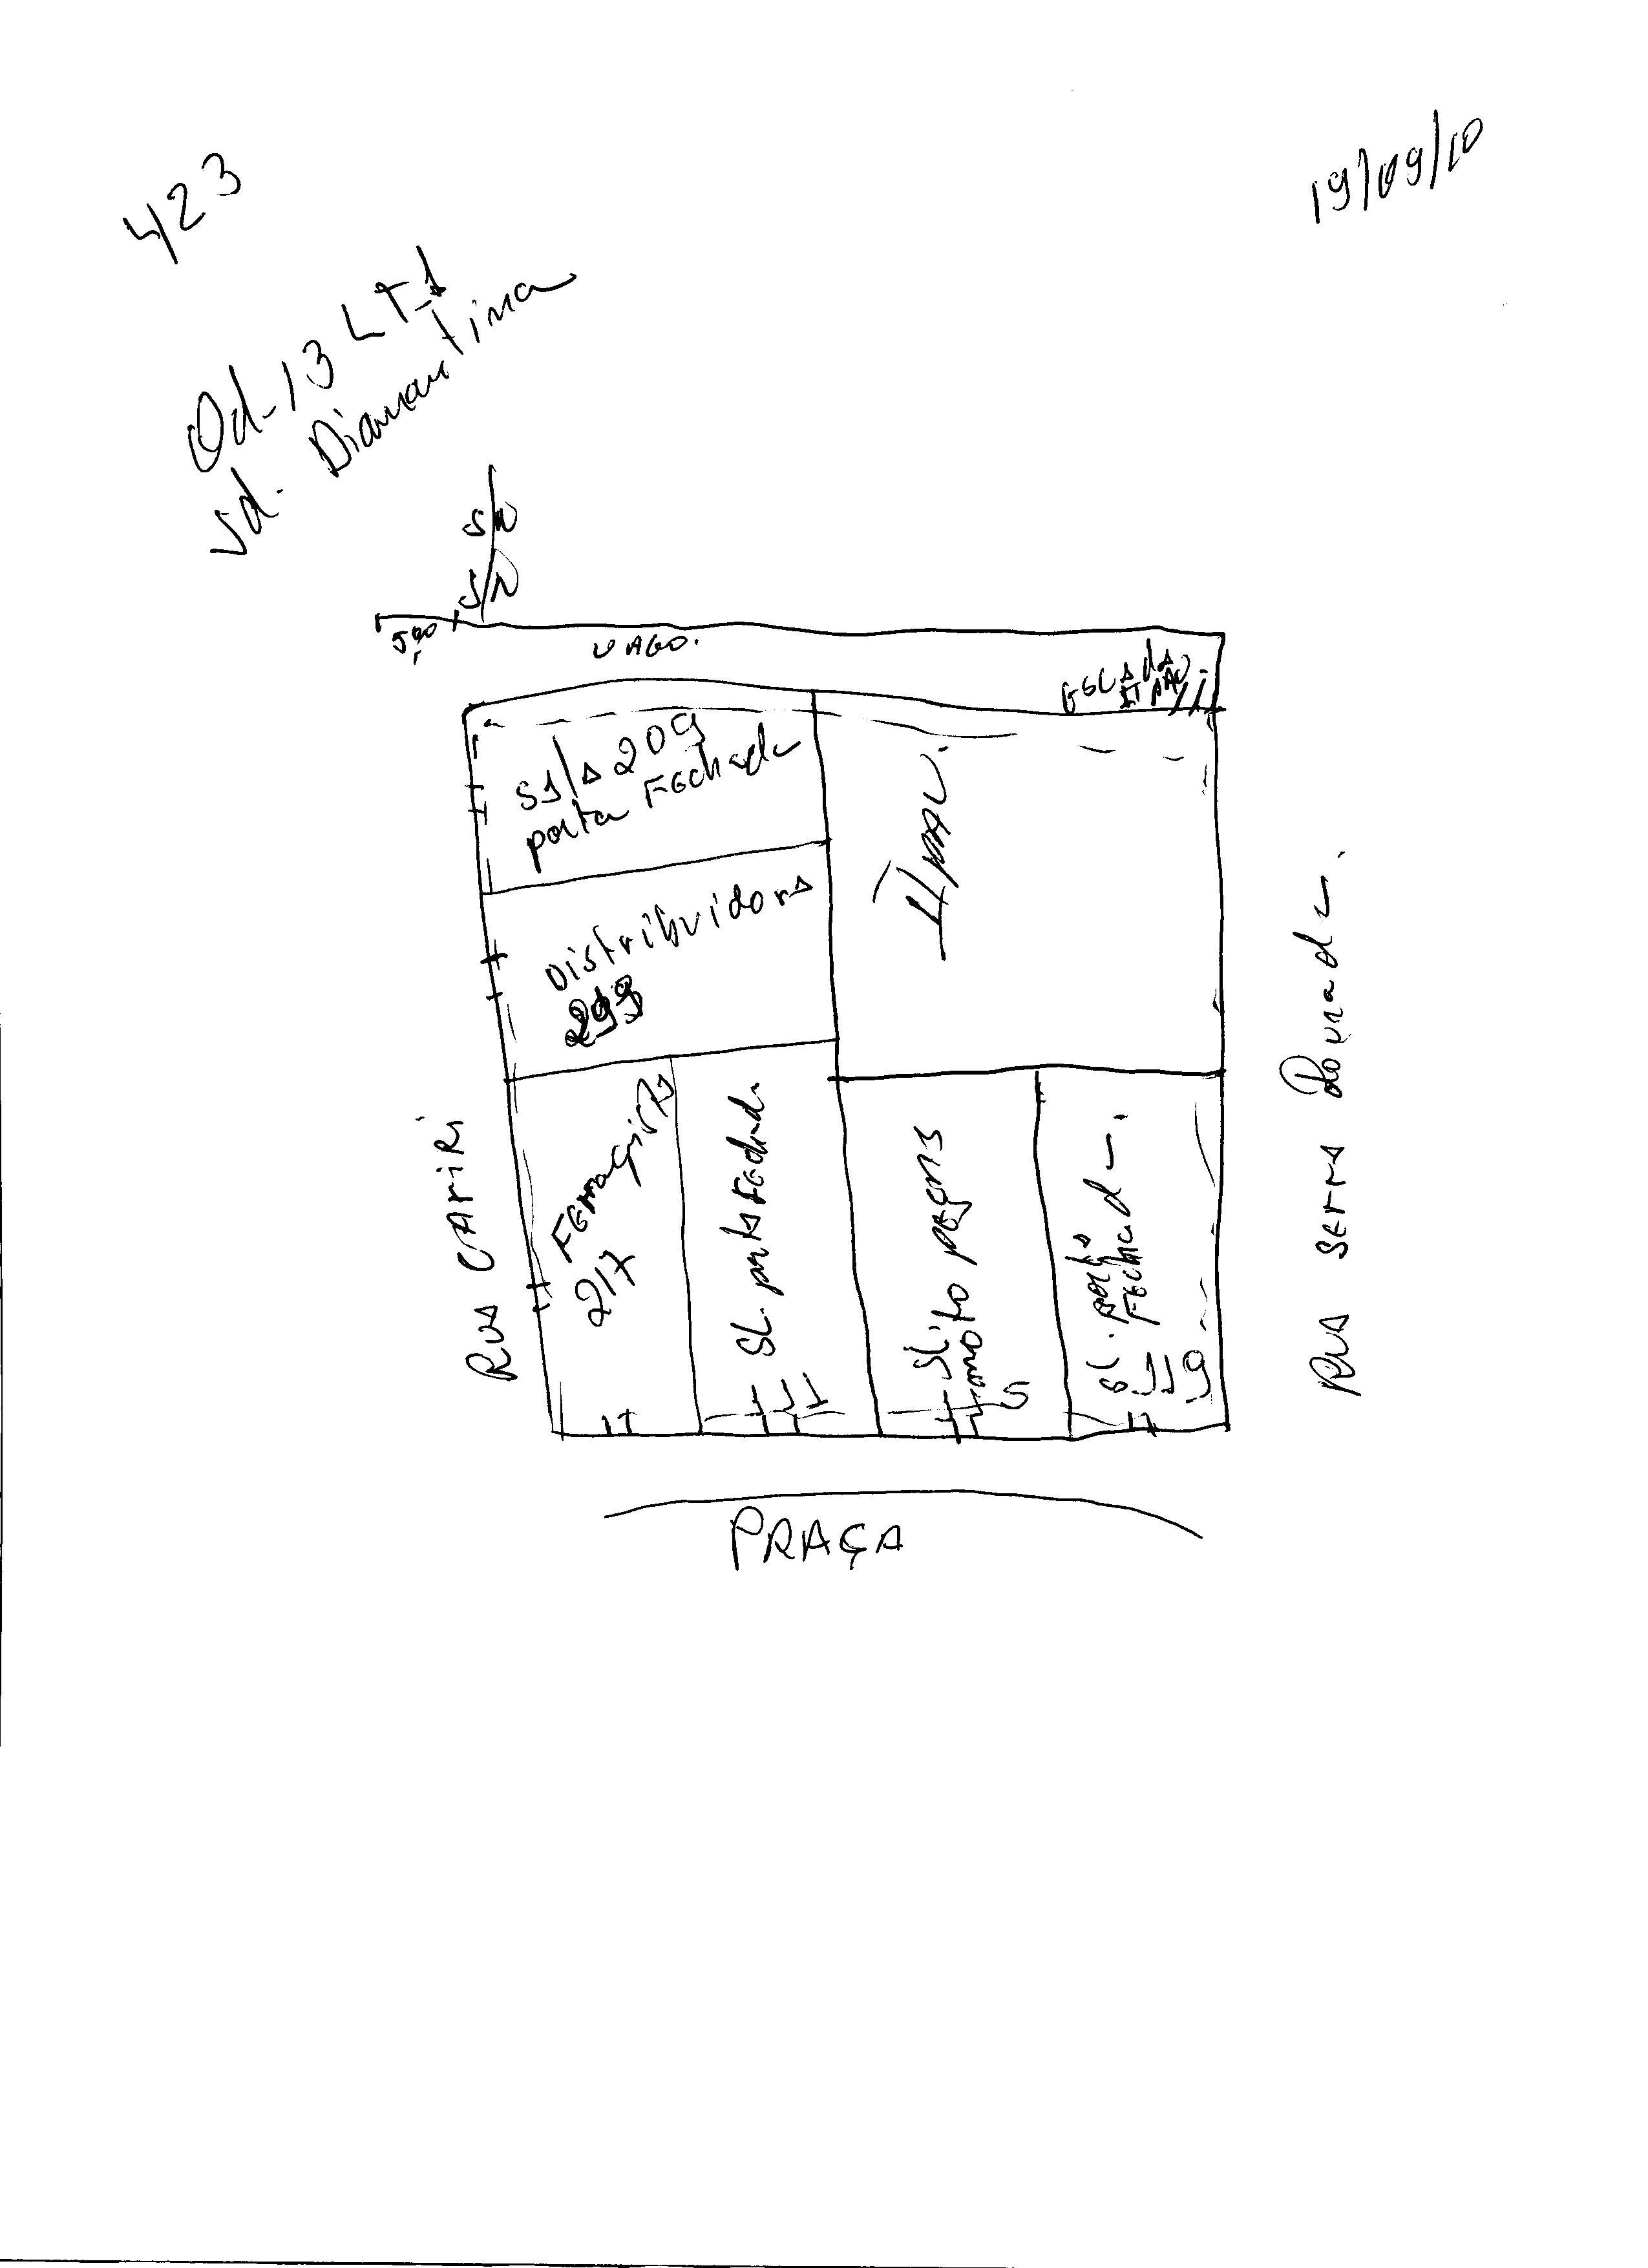 423
19/09/10
Qd-13 LT-1
Jd. Diamantina
S/N
S/N
5,00
VAGO.
ESCAdA
ITPAC
SALA 209
porta FEchada
Itpac.
Distribuidora
299
FErragista
217
SL. porta FEchada
11
SL. porta
FEchada.
119
5
RUA CARIRI
RUA SERRA DOURADA.
PRAÇA